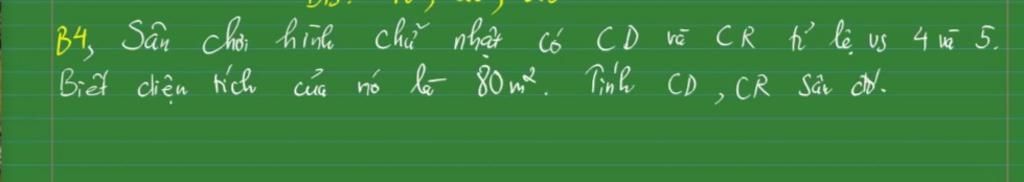 B4, Sân chơi hình chữ nhật có CD và CR tỉ lệ vs 4 và 5.
Biết diện tích của nó là 80m². Tính CD, CR sân đó.